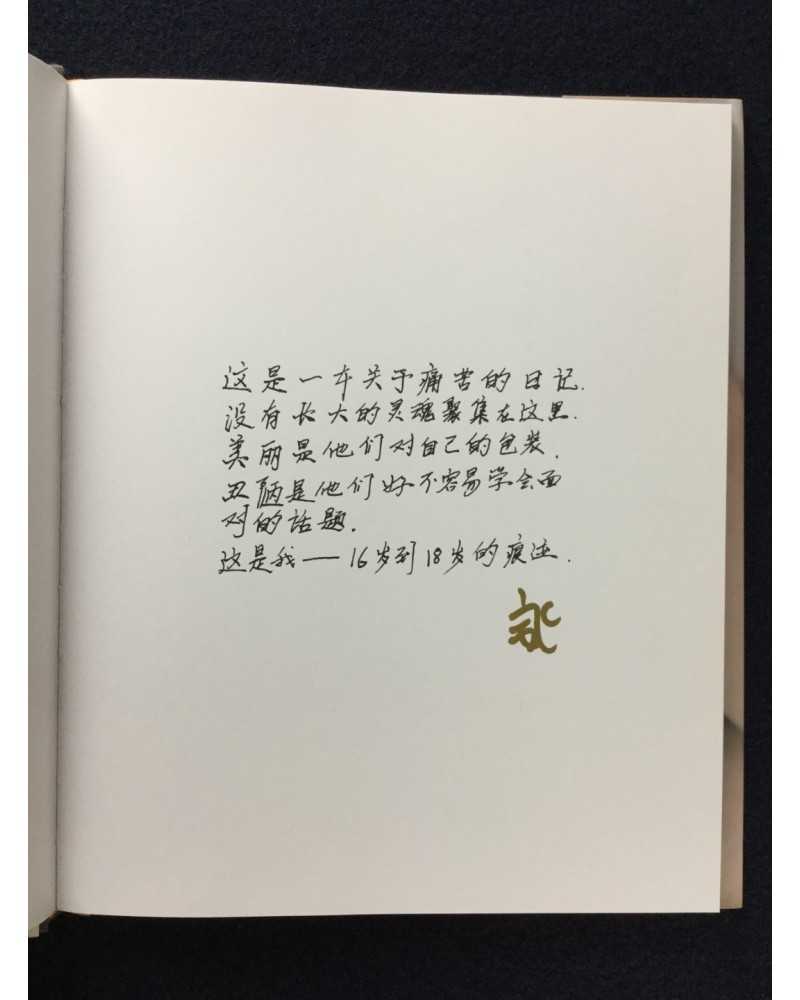 这是一本关于痛苦的日记.
没有长大的灵魂聚集在这里.
美丽是他们对自己的包装.
丑陋是他们好不容易学会面
对的话题.
这是我——16岁到18岁的痕迹.